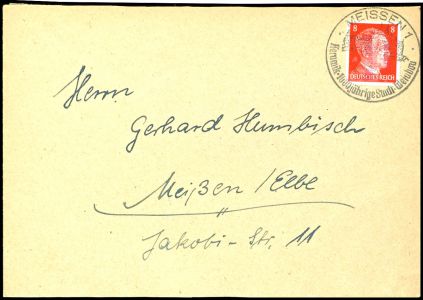 MEISSEN 1
8 8
DEUTSCHES REICH
Keramik·1000jährige Stadt·Weinbau
Herrn
Gerhard Humbisch
Meißen/Elbe
Jakobi-Str. 11